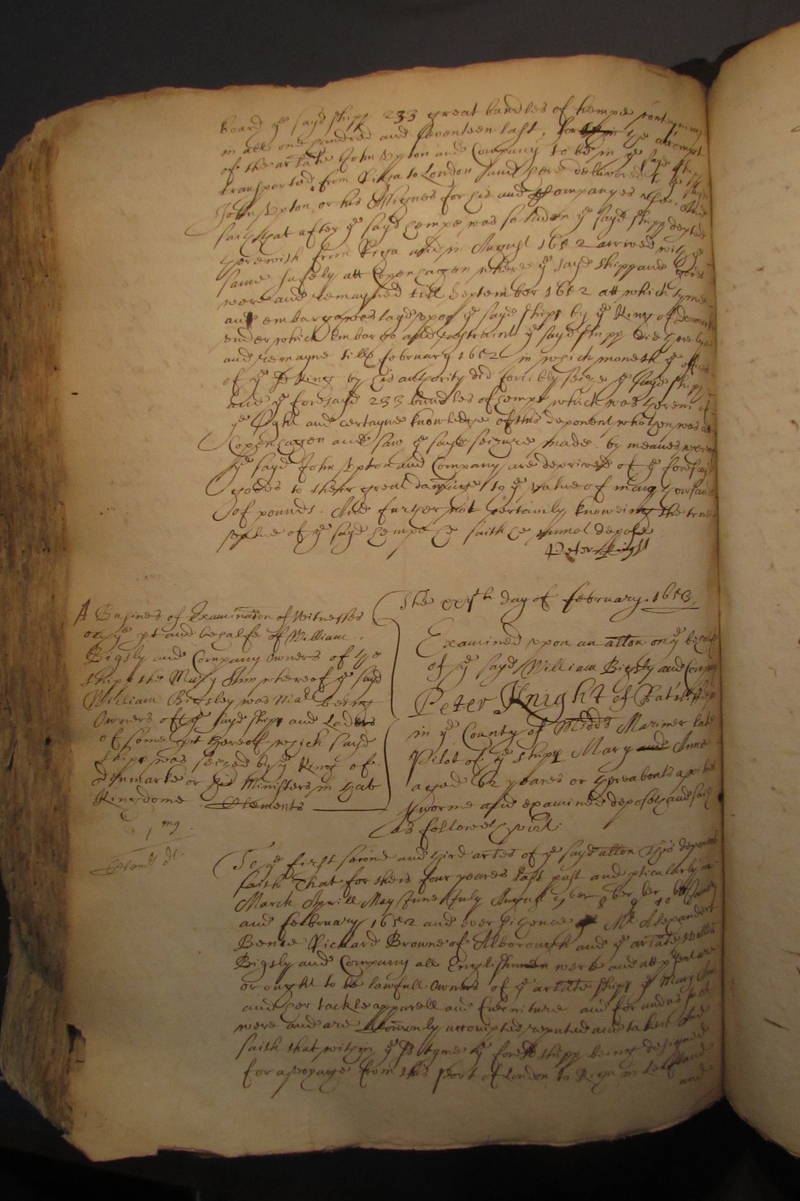 board ye sayd shipp 233 great bundles of hempe
in all one hundred and seventeen last, for ye accompt
of the arlate John Upton and Company to be in ye sayd shipp
transported from Riga to London and there delivered to ye sayd
John Upton or his Assignes for his and Companyes use. And
saith that after ye sayd hempe was soe laden ye sayd shipp departed
therewith from Riga and in August 1652 arrived with ye
same safely att Copenhagen where ye sayd shipp and goods
were and remayned till September 1652 att which tyme
an embargo was layd upon ye sayd shipp by ye King of Denmarke
under which Embargo and restraint ye sayd shipp did there lye
and remayne till February 1652 in which moneth ye officers
of ye sd King by his authority did forcibly seize ye sayd shipp
and ye foresayd 233 bundles of hempe which was therein
ye sight and certayne knowledge of this deponent who then was at
Copenhagen and saw ye sayd seizure made. by meanes whereof
ye sayd John Upton and Company are deprived of ye foresayd
goods to their great damage to ye value of many thousand
of pounds. And further not certainly knoweing the true
value of ye sayd hempe he saith he cannot depose
Peter Knight
The day of February. 1653.
A Busines of Examination of Witnesses
on ye pt and behalfe of William
Bigsby and Company Owners of the
shipp the Mary Ann whereof ye sayd
William Bigsley was Master being
Owners of ye sayd shipp and Laders
of some part thereof which sayd
shipp was seized by ye King of
Denmarke or his Ministers in that
Kingdome Clements
Examined upon an allon on ye behalfe
of ye sayd William Bigsby and Company
Peter Knight of Ratcliffe
in ye County of Middx Mariner late
Pilot of ye shipp Mary and Anne
aged 62 yeares or thereabouts
sworne and examined deposeth and saith
as followeth vizt.
To ye first second and third arles of ye sayd allon this deponent
saith That for theis four yeares last past and pticularly in
March Aprill May June July August 7ber 8ber 9ber
and February 1652 and ever since Mr Alexander
Bence Richard Browne of Alborough and ye arlate William
Bigsby and Company all Englishmen were and att present are
or ought to be lawfull Owners of ye arlate shipp ye Mary Ann
and her tackle apparell and Furniture and for and as such
were and are commonly accompted reputed and taken And
saith that within ye sd tyme ye foresd shipp being designed
for a voyage from this Port of London to Riga in
and